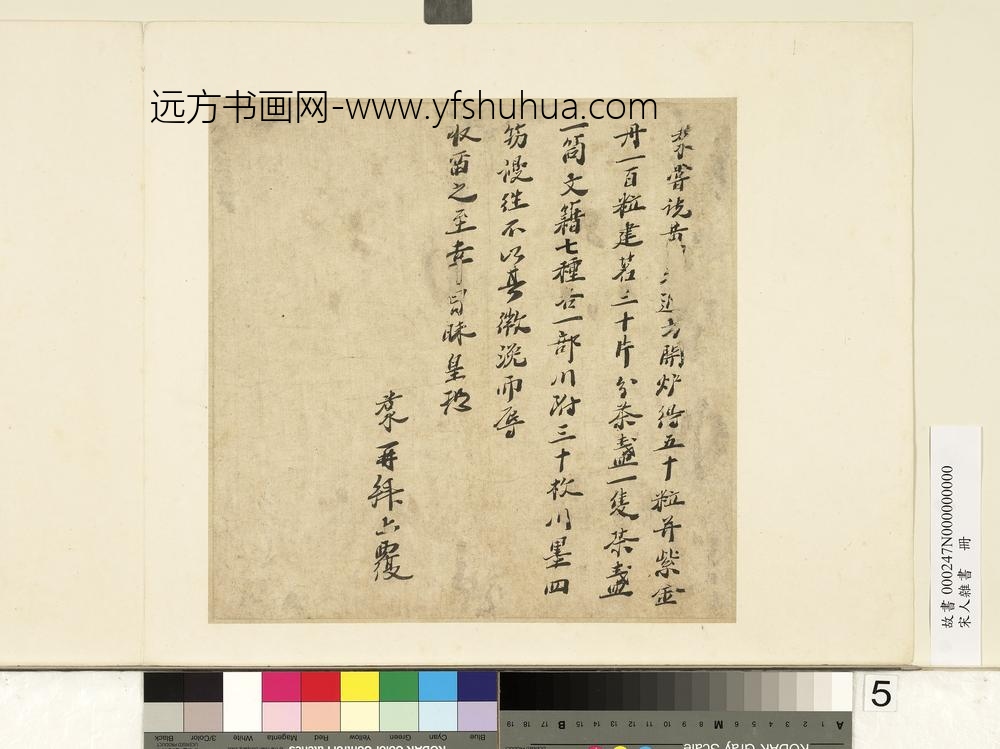 远方书画网-www.yfshuhua.com
嘗說黃近方開炉得五十粒并紫金
丹一百粒建茗三十片分茶盞一隻茶盞
一筒文籍七種合一部川附三十枚川墨四
笏謾往不以其微浼而辱
收留之至幸冒昧皇恐
再拜上覆
故書 000247N000000000
宋人雜書 冊
5
Blue Cyan Green Yellow Red Magenta White 3/Color Black
A 1 2 3 4 5 6 M 8 9 10 11 12 13 14 15 B 17 18 19